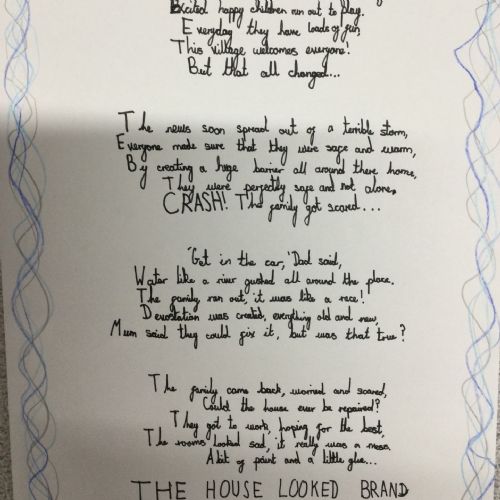 Excited happy children run out to play.
Everyday they have loads of fun,
This village welcomes everyone!
But that all changed...
The news soon spread out of a terrible storm,
Everyone made sure that they were safe and warm,
By creating a huge barrier all around there home,
They were perfectly safe and not alone,
CRASH! The family got scared...
"Get in the car," Dad said,
Water like a river gushed all around the place.
The family ran out, it was like a race!
Devastation was created, everything old and new,
Mum said they could fix it, but was that true?
The family came back, worried and scared,
Could the house ever be repaired?
They got to work, hoping for the best,
The rooms looked sad, it really was a mess,
A bit of paint and a little glue...
THE HOUSE LOOKED BRAND